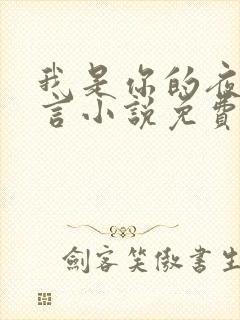 我是你的夜
言小說免費
劍客笑傲書生